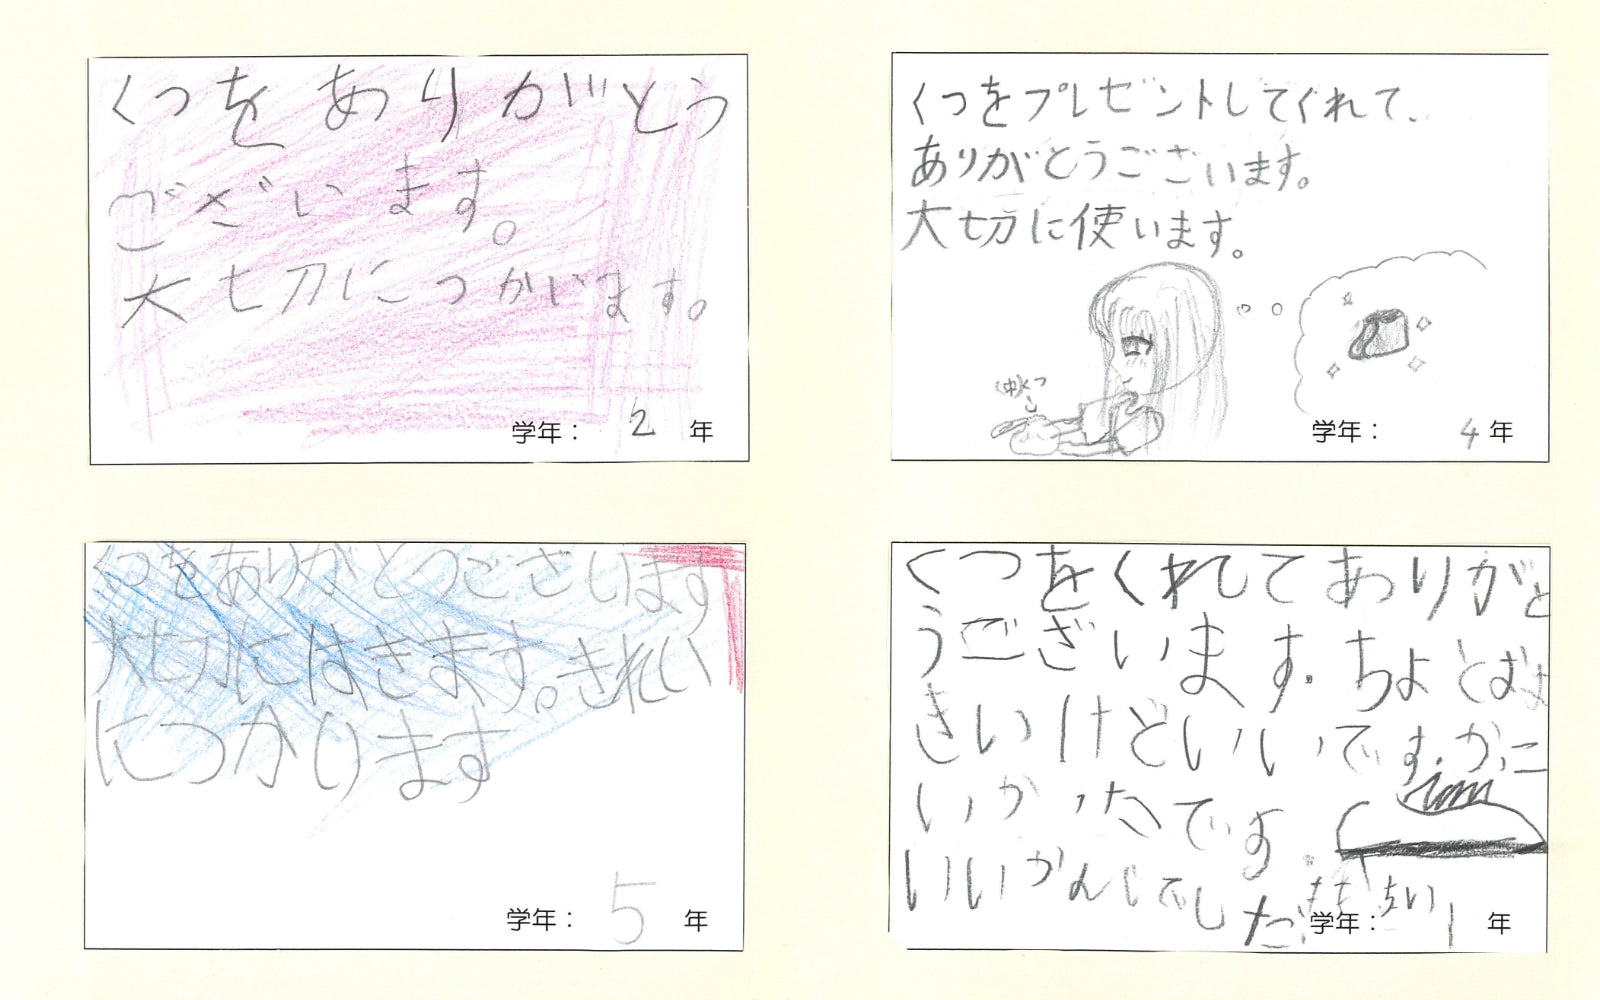 くつをありがとう
ございます。
大切につかいます。
学年： 2 年
くつをプレゼントしてくれて、
ありがとうございます。
大切に使います。
学年： 4 年
くつをありがとうございます
大切にはきます。きれい
につかります
学年： 5 年
くつをくれてありがと
うございます。ちよとばま
きいけどいいです。かこ
いかったです
いいかんじでし
た。
学年： 1 年